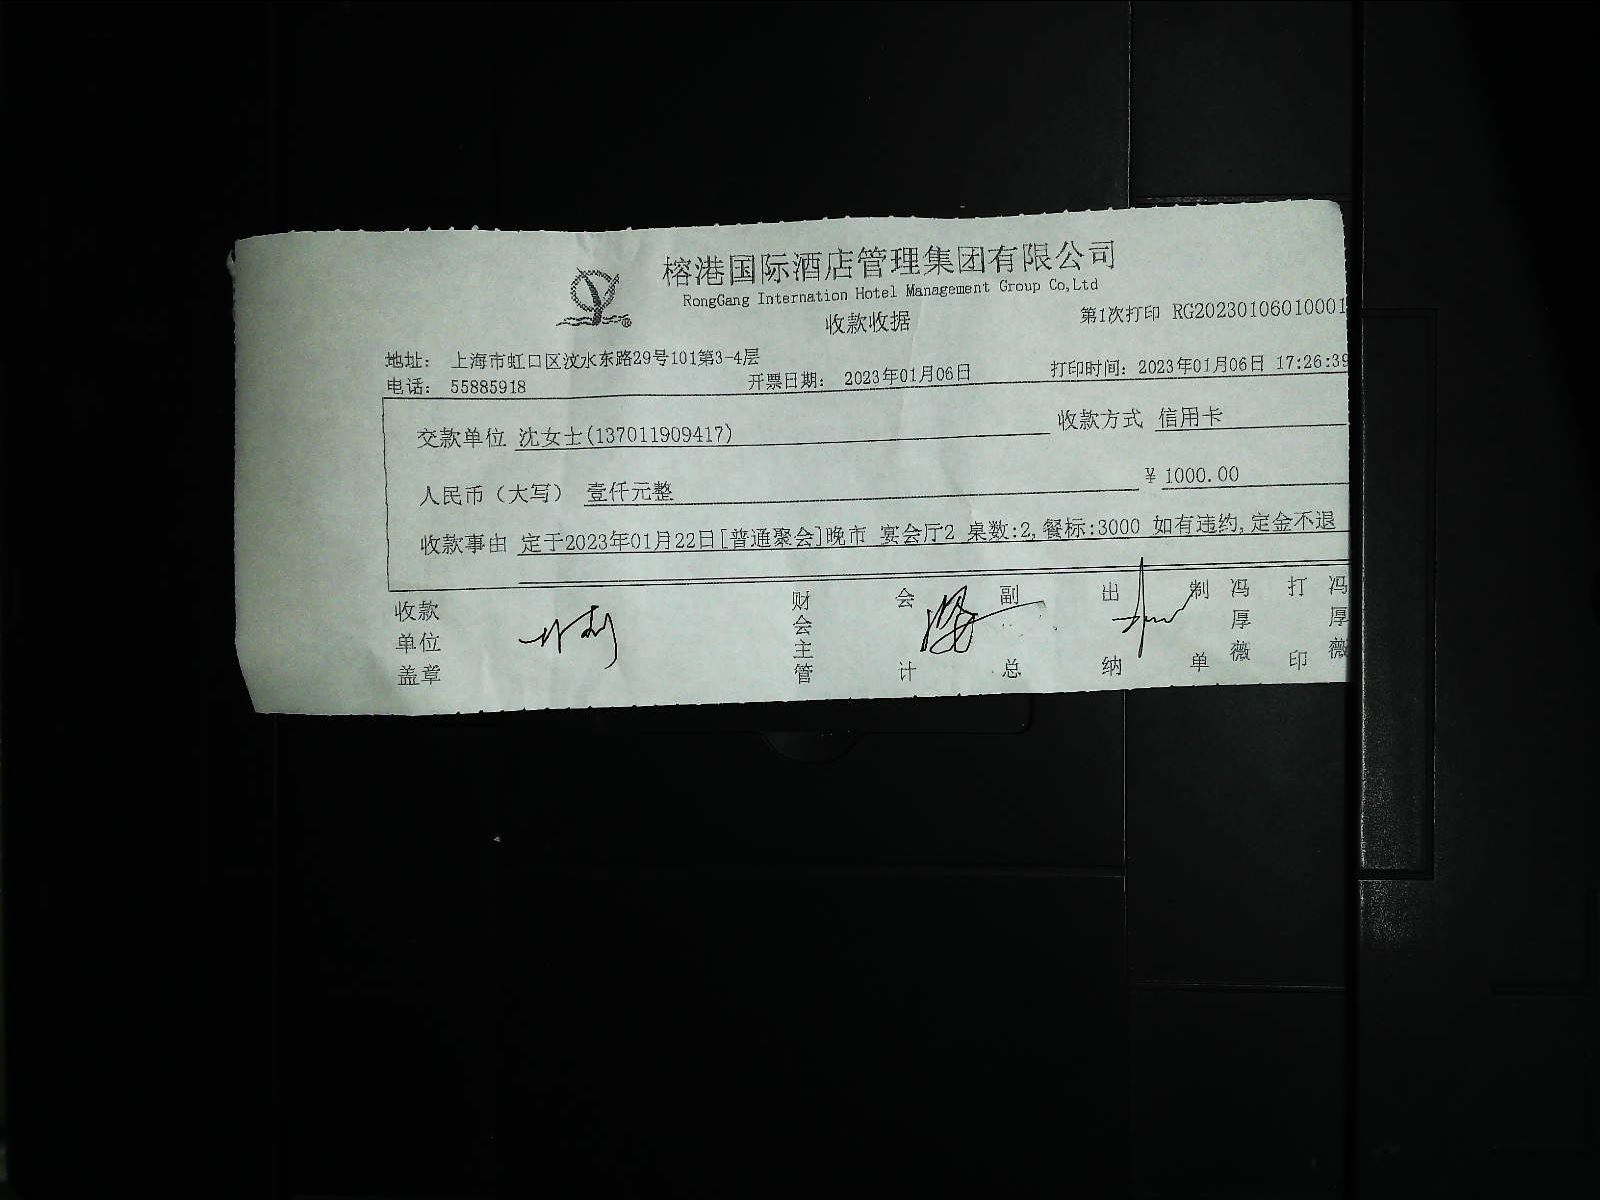 榕港国际酒店管理集团有限公司
RongGang Internation Hotel Management Group Co,Ltd
收款收据
第1次打印 RG20230106010001
地址： 上海市虹口区汶水东路29号101第3-4层
电话： 55885918
开票日期： 2023年01月06日
打印时间：2023年01月06日 17:26:39
交款单位 沈女士(137011909417)
收款方式 信用卡
人民币（大写） 壹仟元整
￥1000.00
收款事由 定于2023年01月22日[普通聚会]晚市 宴会厅2 桌数:2,餐标:3000 如有违约,定金不退
收款单位盖章
财会主管
会计
副总
出纳
制单
冯厚薇
打印
冯厚薇